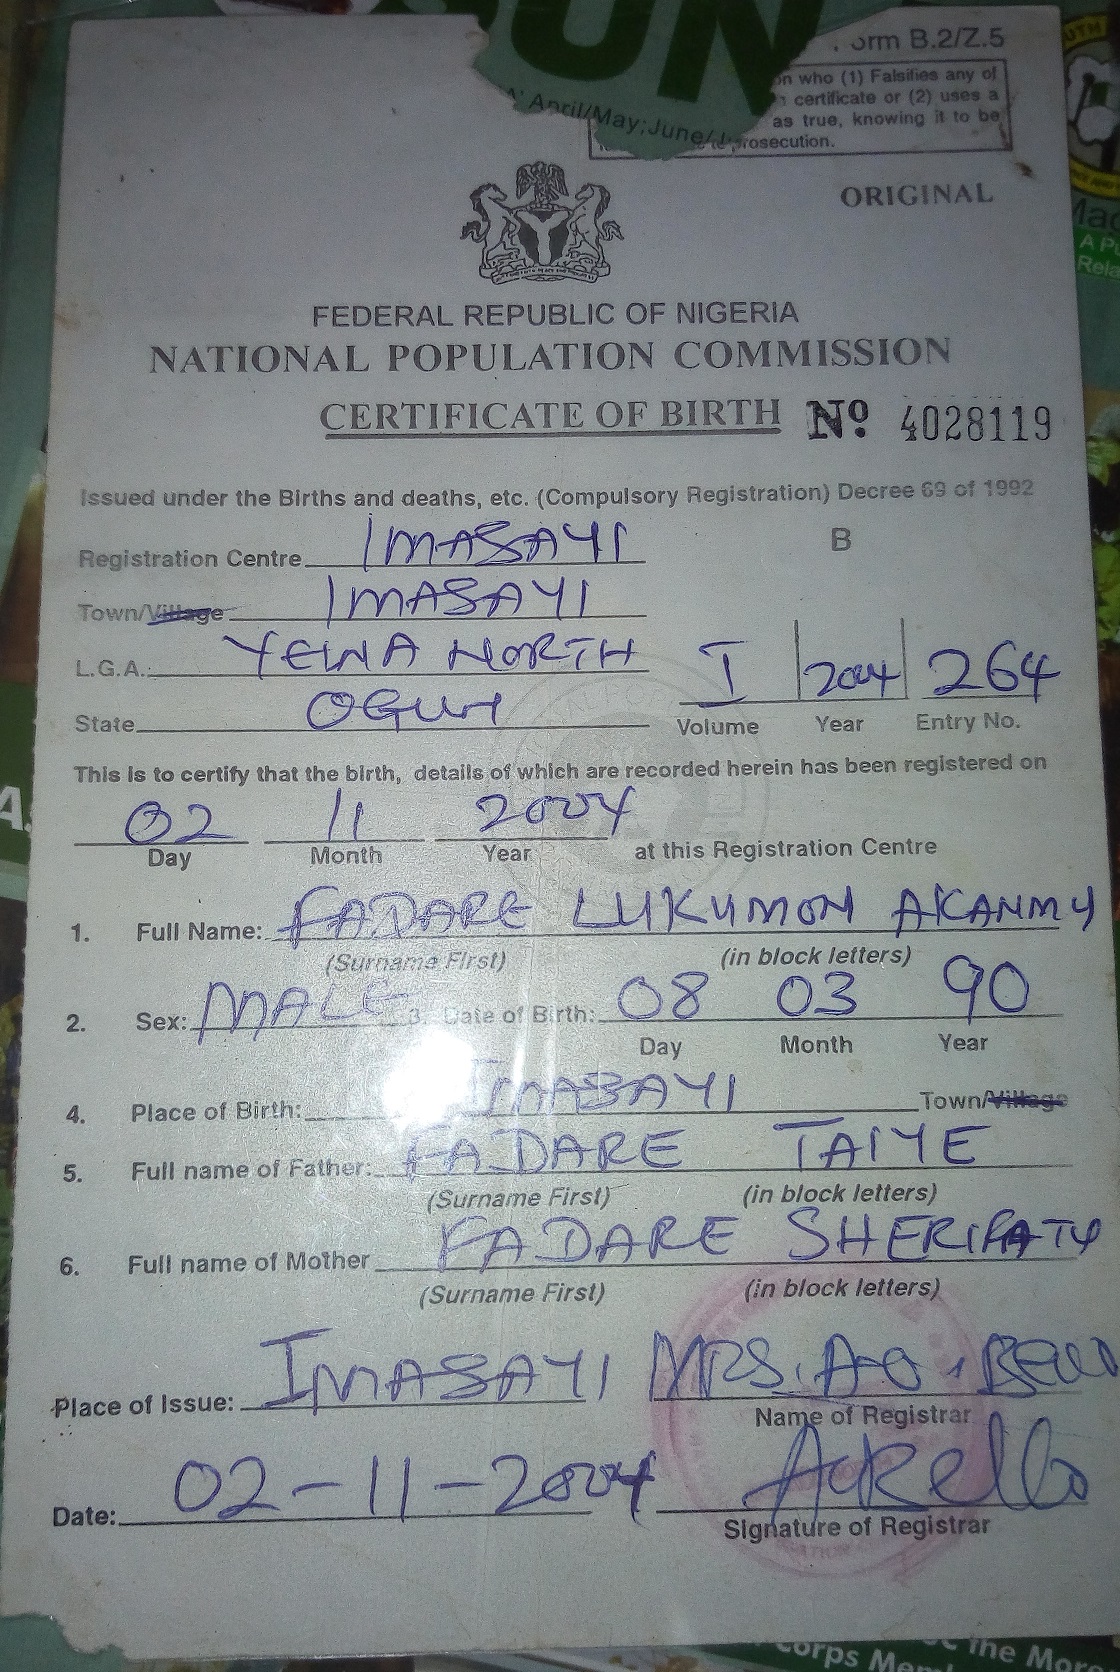 UN
A' April/May;June/J
orm B.2/Z.5
on who (1) Falsifies any of
certificate or (2) uses a
as true, knowing it to be
rosecution.
ORIGINAL
FEDERAL REPUBLIC OF NIGERIA
NATIONAL POPULATION COMMISSION
CERTIFICATE OF BIRTH Nº 4028119
Issued under the Births and deaths, etc. (Compulsory Registration) Decree 69 of 1992
Registration Centre IMASAYI B
Town/Village IMASAYI
L.G.A. YEWA NORTH I 2004 264
State OGUN Volume Year Entry No.
This is to certify that the birth, details of which are recorded herein has been registered on
02 11 2004
Day Month Year at this Registration Centre
1. Full Name: FADARE LUKUMON AKANMU
(Surname First) (in block letters)
2. Sex: MALE 3. Date of Birth: 08 03 90
Day Month Year
4. Place of Birth: IMASAYI Town/Village
5. Full name of Father: FADARE TAIYE
(Surname First) (in block letters)
6. Full name of Mother FADARE SHERIFATU
(Surname First) (in block letters)
Place of Issue: IMASAYI MRS. A.O. Bello
Name of Registrar
Date: 02-11-2004 AOBello
Signature of Registrar
the More
Corps Mem